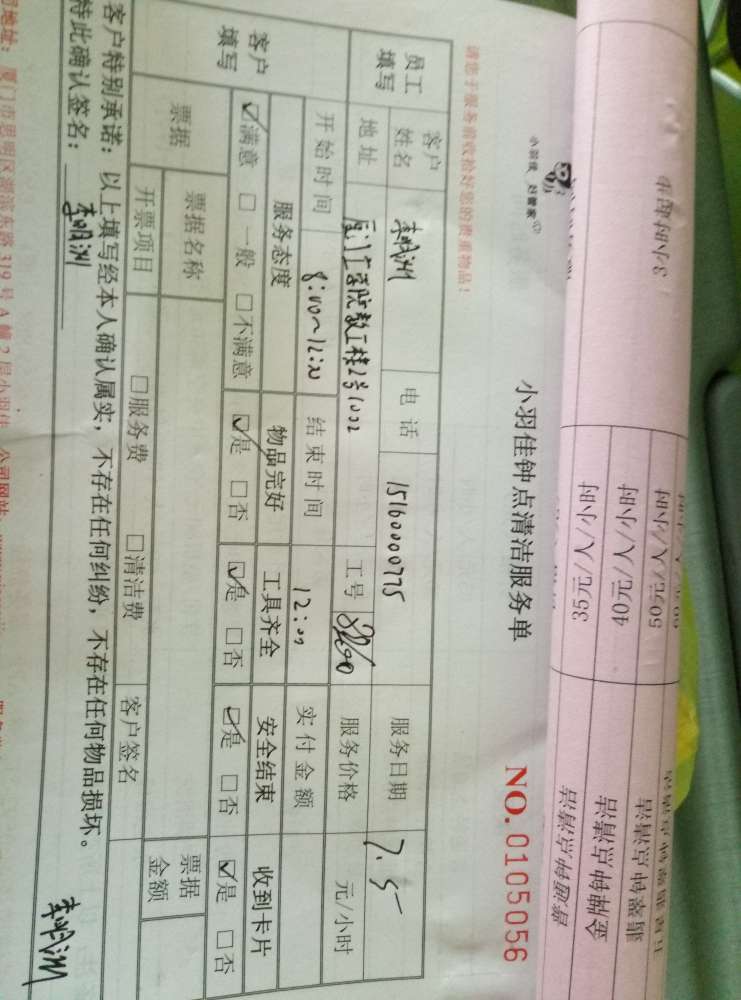 小羽佳 赵管家
小羽佳钟点清洁服务单
NO.0105056
请您于服务前收拾好您的贵重物品！
员工填写 客户姓名 李明洲 电话 15160000775 服务日期 7.5
地址 厦门工学院教工楼2号1002 工号 服务价格 元/小时
开始时间 8:00~12:00 结束时间 12:00 实付金额
客户填写 服务态度 物品完好 工具齐全 安全结束 收到卡片
☑满意 □一般 □不满意 ☑是 □否 ☑是 □否 ☑是 □否 ☑是 □否
票据 票据名称 票据金额
开票项目 □服务费 □清洁费 客户签名
客户特别承诺：以上填写经本人确认属实，不存在任何纠纷，不存在任何物品损坏。
特此确认签名：李明洲 李明洲
司地址：厦门市思明区湖滨东路319号A幢2层小羽佳 公司网站：
3小时起步
50元/人/小时
40元/人/小时
35元/人/小时
金牌钟点清洁
普通钟点清洁